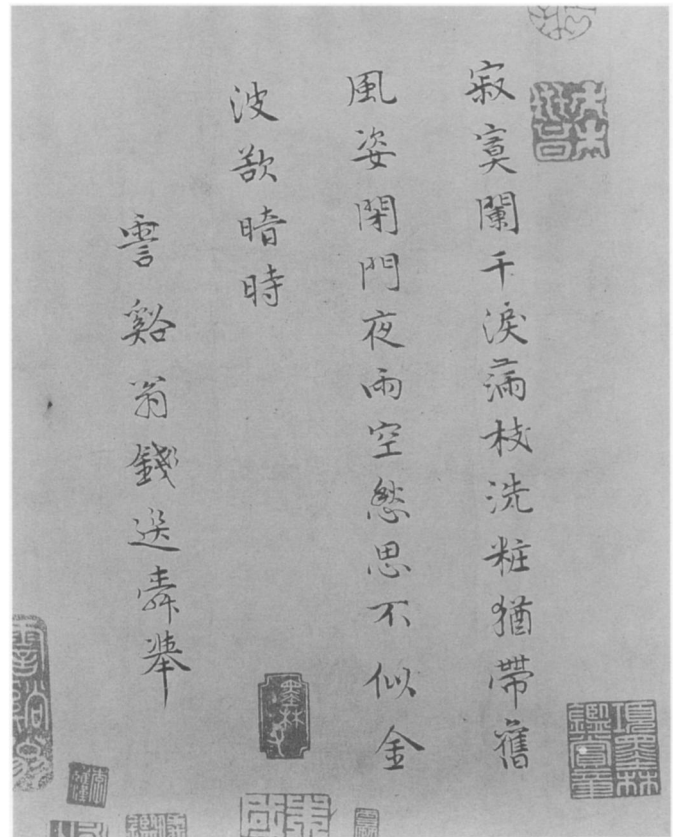 寂寞闌干淚滿枝洗粧猶帶舊
風姿閉門夜雨空愁思不似金
波欲暗時
霅谿翁錢選舜舉
項墨林鑑賞章